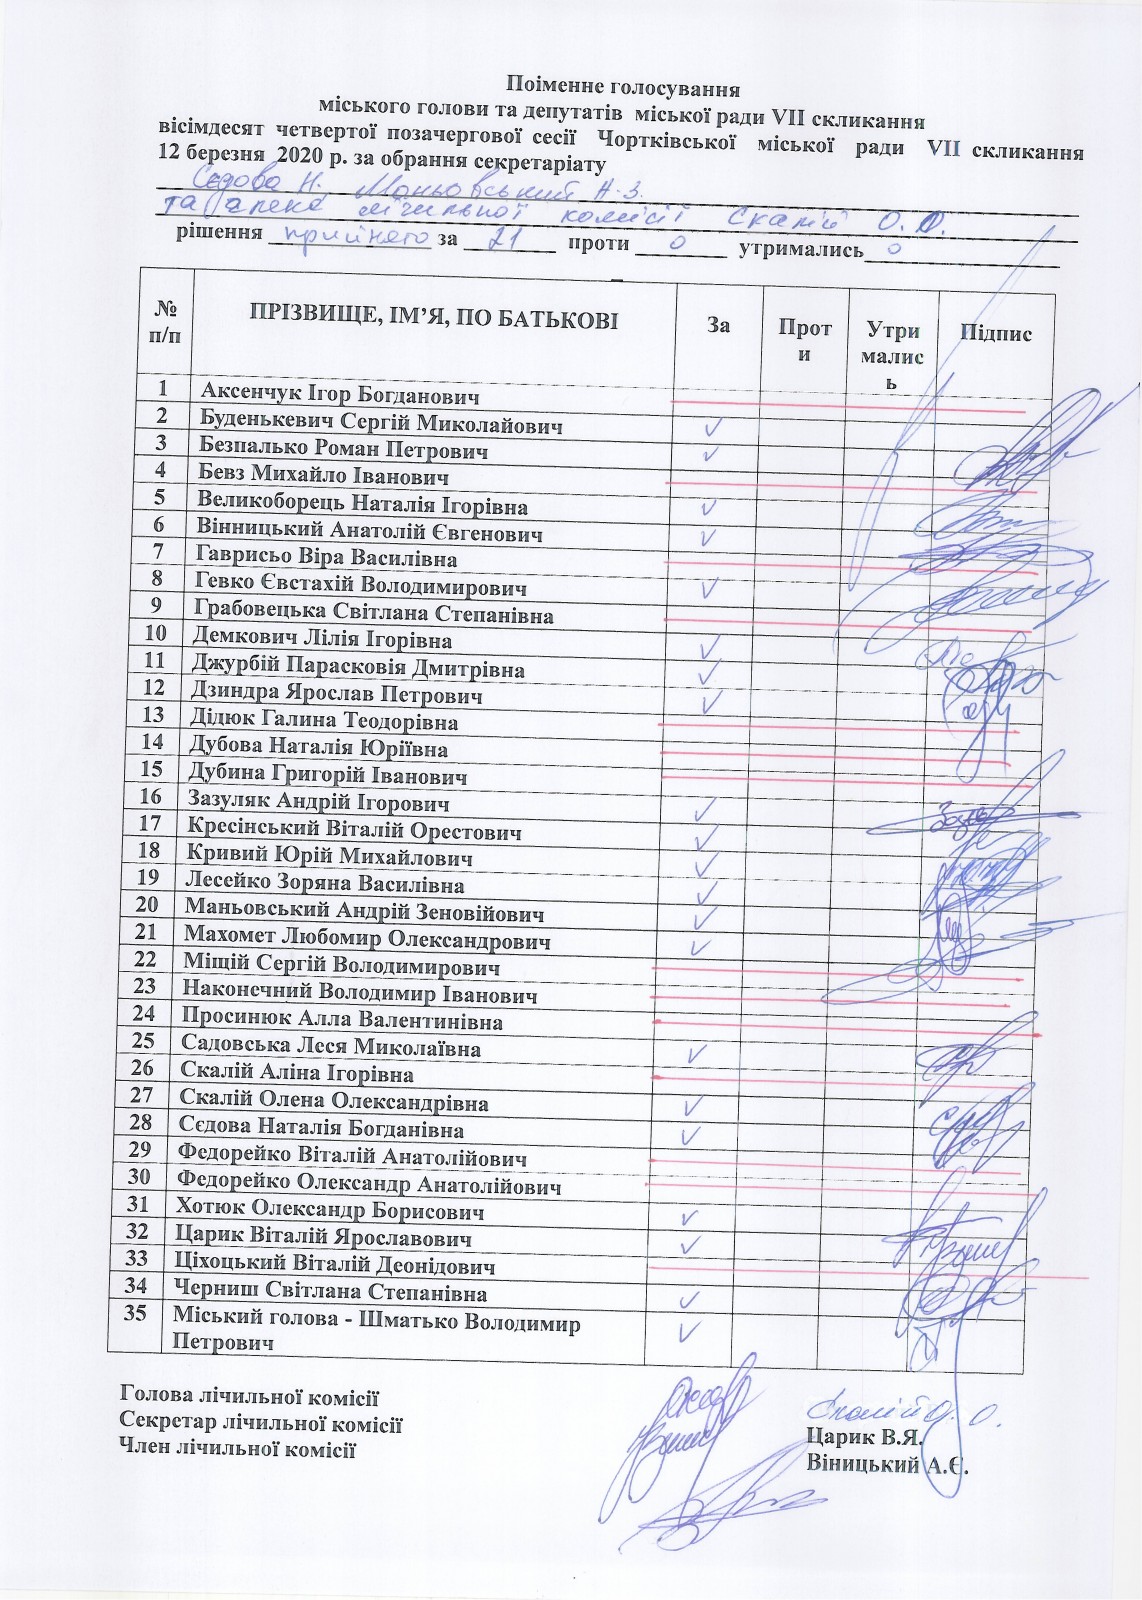 Поіменне голосування
міського голови та депутатів міської ради VII скликання
вісімдесят четвертої позачергової сесії Чортківської міської ради VII скликання
12 березня 2020 р. за обрання секретаріату
Сєдова Н. Маньовський А.З.
та члена лічильної комісії Скалій О.О.
рішення прийнято за 21 проти 0 утримались 0
№ п/п ПРІЗВИЩЕ, ІМ’Я, ПО БАТЬКОВІ За Проти Утрималиcь Підпис
1 Аксенчук Ігор Богданович
2 Буденькевич Сергій Миколайович ✓
3 Безпалько Роман Петрович ✓
4 Бевз Михайло Іванович
5 Великоборець Наталія Ігорівна ✓
6 Вінницький Анатолій Євгенович ✓
7 Гаврисьо Віра Василівна
8 Гевко Євстахій Володимирович ✓
9 Грабовецька Світлана Степанівна
10 Демкович Лілія Ігорівна ✓
11 Джурбій Парасковія Дмитрівна ✓
12 Дзиндра Ярослав Петрович ✓
13 Дідюк Галина Теодорівна
14 Дубова Наталія Юріївна
15 Дубина Григорій Іванович
16 Зазуляк Андрій Ігорович ✓
17 Кресінський Віталій Орестович ✓
18 Кривий Юрій Михайлович ✓
19 Лесейко Зоряна Василівна ✓
20 Маньовський Андрій Зеновійович ✓
21 Махомет Любомир Олександрович ✓
22 Міщій Сергій Володимирович
23 Наконечний Володимир Іванович
24 Просинюк Алла Валентинівна
25 Садовська Леся Миколаївна ✓
26 Скалій Аліна Ігорівна
27 Скалій Олена Олександрівна ✓
28 Сєдова Наталія Богданівна ✓
29 Федорейко Віталій Анатолійович
30 Федорейко Олександр Анатолійович
31 Хотюк Олександр Борисович ✓
32 Царик Віталій Ярославович ✓
33 Ціхоцький Віталій Деонідович
34 Черниш Світлана Степанівна ✓
35 Міський голова - Шматько Володимир ✓
Петрович
Голова лічильної комісії Скалій О. О.
Секретар лічильної комісії Царик В.Я.
Член лічильної комісії Віницький А.Є.